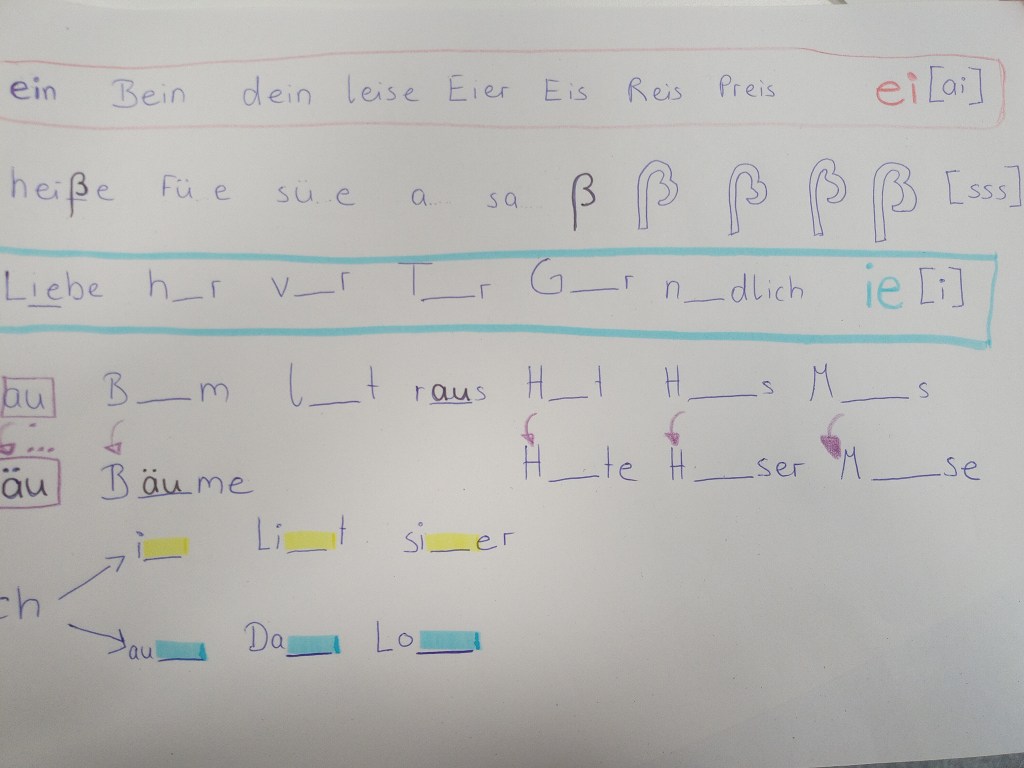 ein Bein dein leise Eier Eis Reis Preis ei [ai]
heiße Fü..e sü..e a.... sa.... ß ß ß ß ß [sss]
Liebe h_r v__r T__r G__r n__dlich ie [i]
au B__m l__t raus H__t H___s M____s
äu Bäume H__te H___ser M____se
i__ Li__t si__er
ch
au__ Da__ Lo__